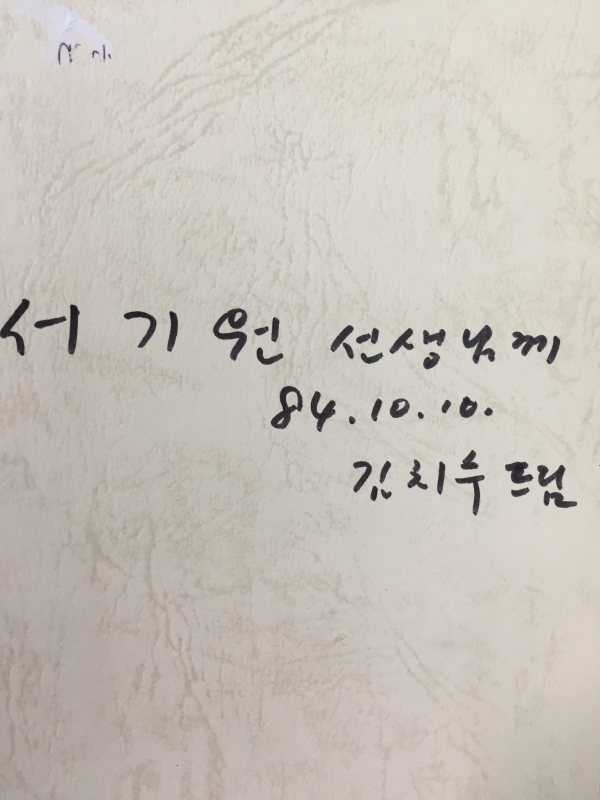 서 기 원 선생님께
84.10.10.
김치수 드림